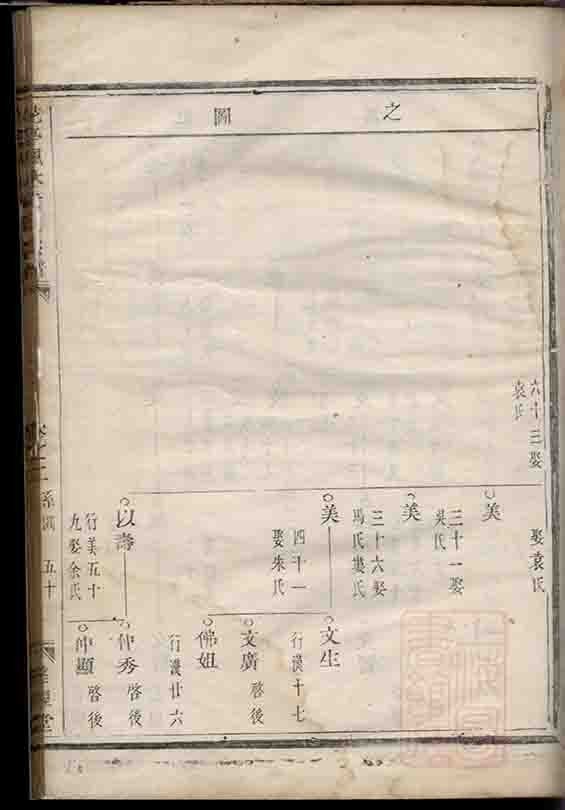 之圖
六十三娶
袁氏
娶袁氏
美
三十一娶
吳氏
美
三十六娶
馬氏婁氏
美
四十一
娶朱氏
以壽
行美五十
九娶余氏
文生
行漢十七
文廣
啓後
佛姐
行漢廿六
仲秀
啓後
仲顯
啓後
系圖
五十
堂